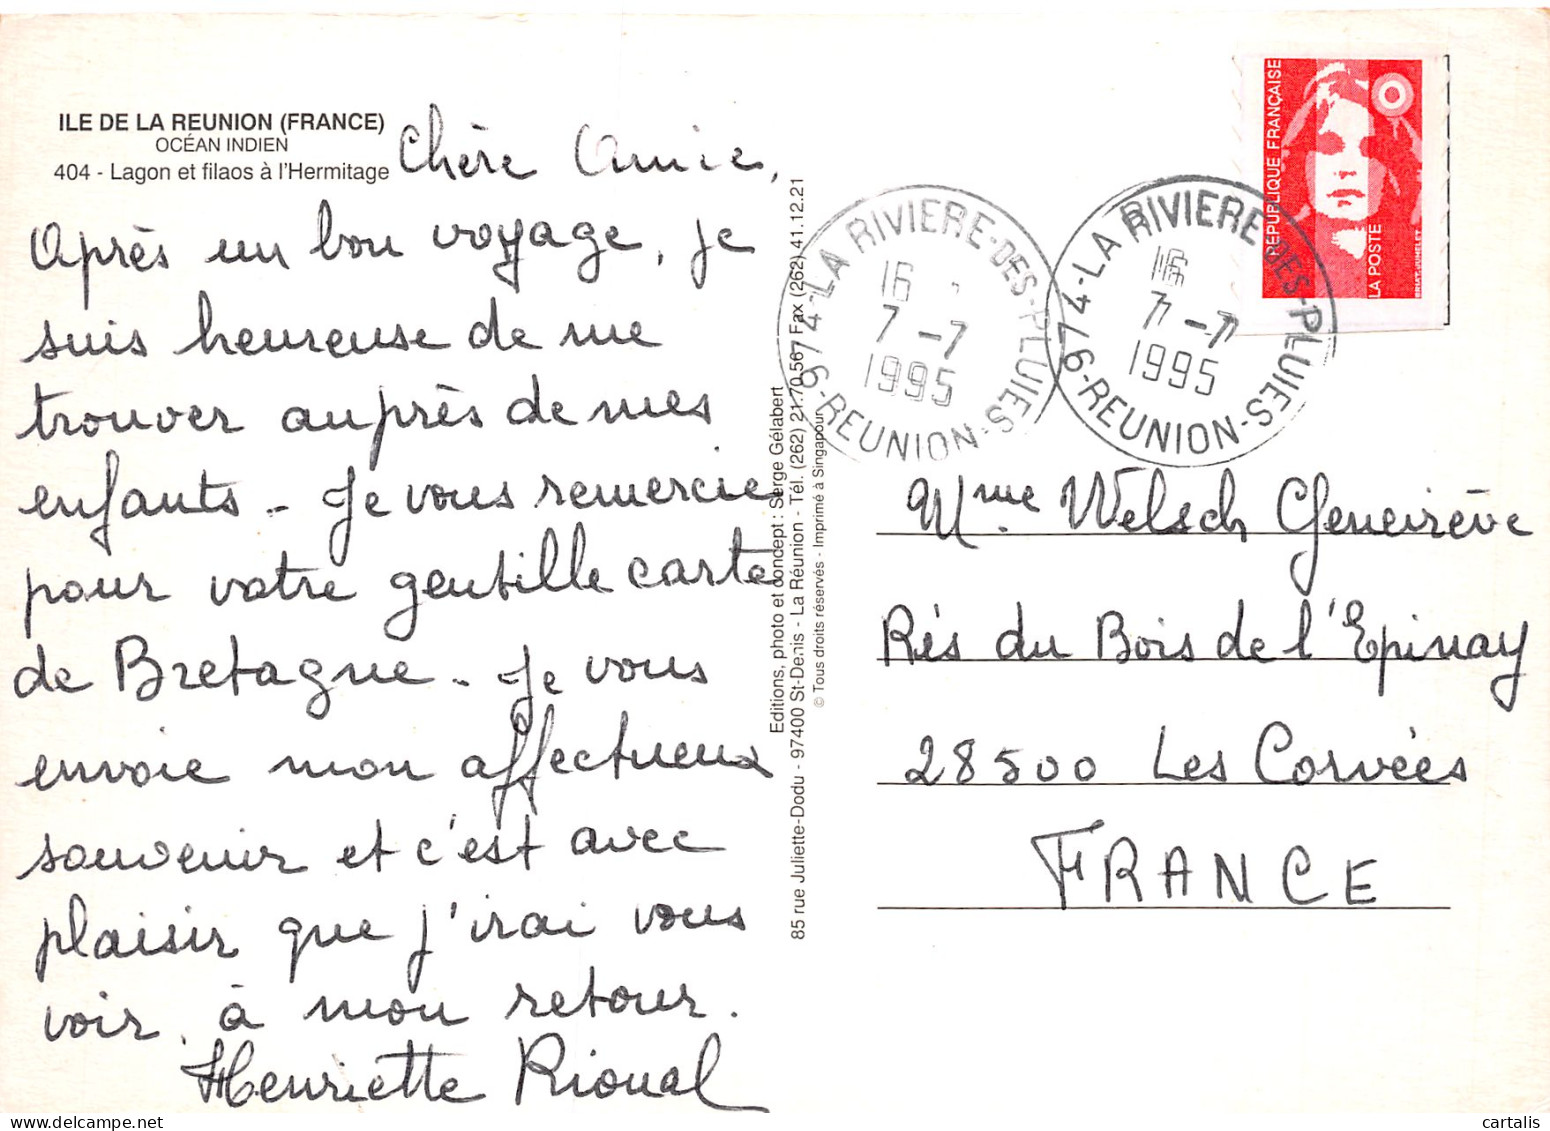 ILE DE LA REUNION (FRANCE)
OCÉAN INDIEN
404 - Lagon et filaos à l'Hermitage
Chère Amie,
Après un bon voyage, je
suis heureuse de me
trouver auprès de mes
enfants - Je vous remercie
pour votre gentille carte
de Bretagne - Je vous
envoie mon affectueux
souvenir et c'est avec
plaisir que j'irai vous
voir, à mon retour.
Henriette Rioual
Editions, photo et concept : Serge Gélabert
85 rue Juliette-Dodu - 97400 St-Denis - La Réunion - Tél. (262) 21.70.56 Fax (262) 41.12.21
© Tous droits réservés - Imprimé à Singapour
974-LA RIVIERE-DES-PLUIES-REUNION
16
7-7
1995
974-LA RIVIERE-DES-PLUIES-REUNION
16
7-7
1995
REPUBLIQUE FRANÇAISE
LA POSTE
BRIAT-JUMELET
Mme Welsch Geneviève
Rés du Bois de l'Epinay
28500 Les Corvées
FRANCE
www.cartalis.com